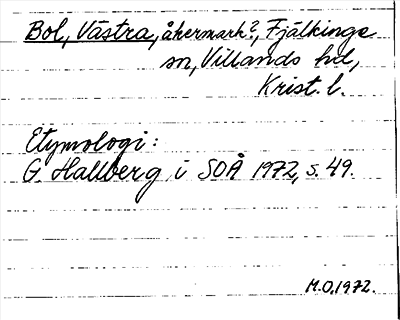 Bol, Västra, åkermark?, Fjälkinge
sn, Villands hd,
Krist. l.
Etymologi:
G. Hallberg i SOÅ 1972, s. 49.
M.O. 1972.